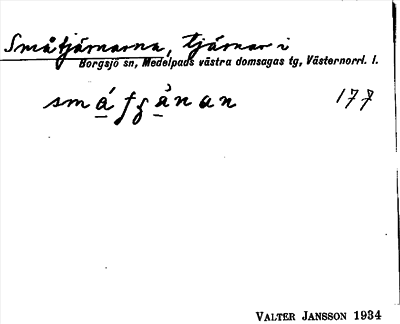 Småtjärnarna, tjärnar i
Borgsjö sn, Medelpads västra domsagas tg, Västernorrl. l.
177
VALTER JANSSON 1934